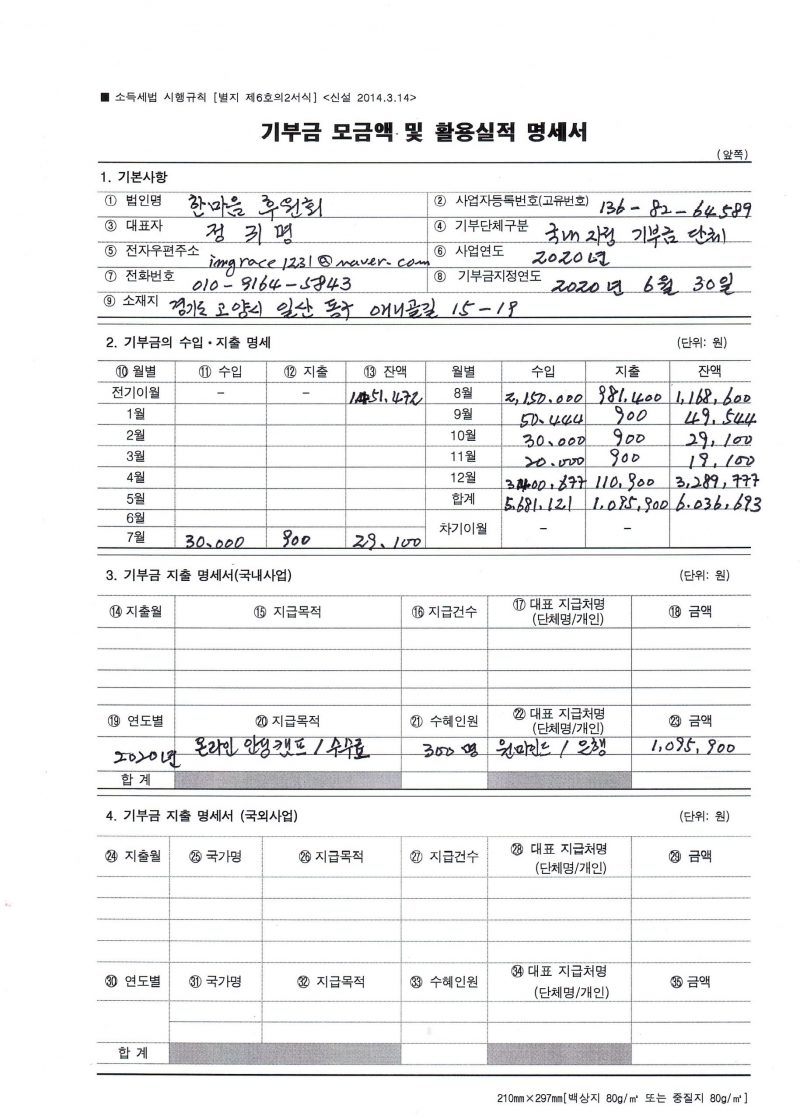 ■ 소득세법 시행규칙 [별지 제6호의2서식] <신설 2014.3.14>
기부금 모금액 및 활용실적 명세서
(앞쪽)
1. 기본사항
① 법인명 한마음 후원회 ② 사업자등록번호(고유번호) 136-82-64589
③ 대표자 정귀명 ④ 기부단체구분 국내 지정 기부금 단체
⑤ 전자우편주소 imgrace1231@naver.com ⑥ 사업연도 2020년
⑦ 전화번호 010-9164-5843 ⑧ 기부금지정연도 2020년 6월 30일
⑨ 소재지 경기도 고양시 일산 동구 애니골길 15-19
2. 기부금의 수입·지출 명세 (단위: 원)
⑩ 월별 ⑪ 수입 ⑫ 지출 ⑬ 잔액 월별 수입 지출 잔액
전기이월 - - 1,451,472 8월 2,150,000 981,400 1,168,600
1월 9월 50,444 900 49,544
2월 10월 30,000 900 29,100
3월 11월 20,000 900 19,100
4월 12월 3,400,677 110,900 3,289,777
5월 합계 5,681,121 1,095,900 6,036,693
6월
7월 30,000 900 29,100 차기이월 - -
3. 기부금 지출 명세서(국내사업) (단위: 원)
⑭ 지출월 ⑮ 지급목적 ⑯ 지급건수 ⑰ 대표 지급처명 (단체명/개인) ⑱ 금액
⑲ 연도별 ⑳ 지급목적 ㉑ 수혜인원 ㉒ 대표 지급처명 (단체명/개인) ㉓ 금액
2020년 온라인 안녕캠프 / 수수료 300명 원마인드 / 은행 1,095,900
합 계
4. 기부금 지출 명세서 (국외사업) (단위: 원)
㉔ 지출월 ㉕ 국가명 ㉖ 지급목적 ㉗ 지급건수 ㉘ 대표 지급처명 (단체명/개인) ㉙ 금액
㉚ 연도별 ㉛ 국가명 ㉜ 지급목적 ㉝ 수혜인원 ㉞ 대표 지급처명 (단체명/개인) ㉟ 금액
합 계
210㎜×297㎜[백상지 80g/㎡ 또는 중질지 80g/㎡]